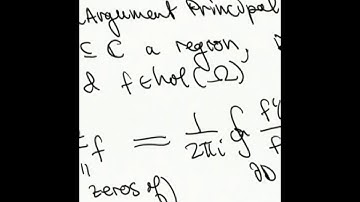 Argument Principal
⊆ ℂ a region,
f ∈ Hol(Ω)
f = 1/2πi ∮ f'
∂D f
zeros of)